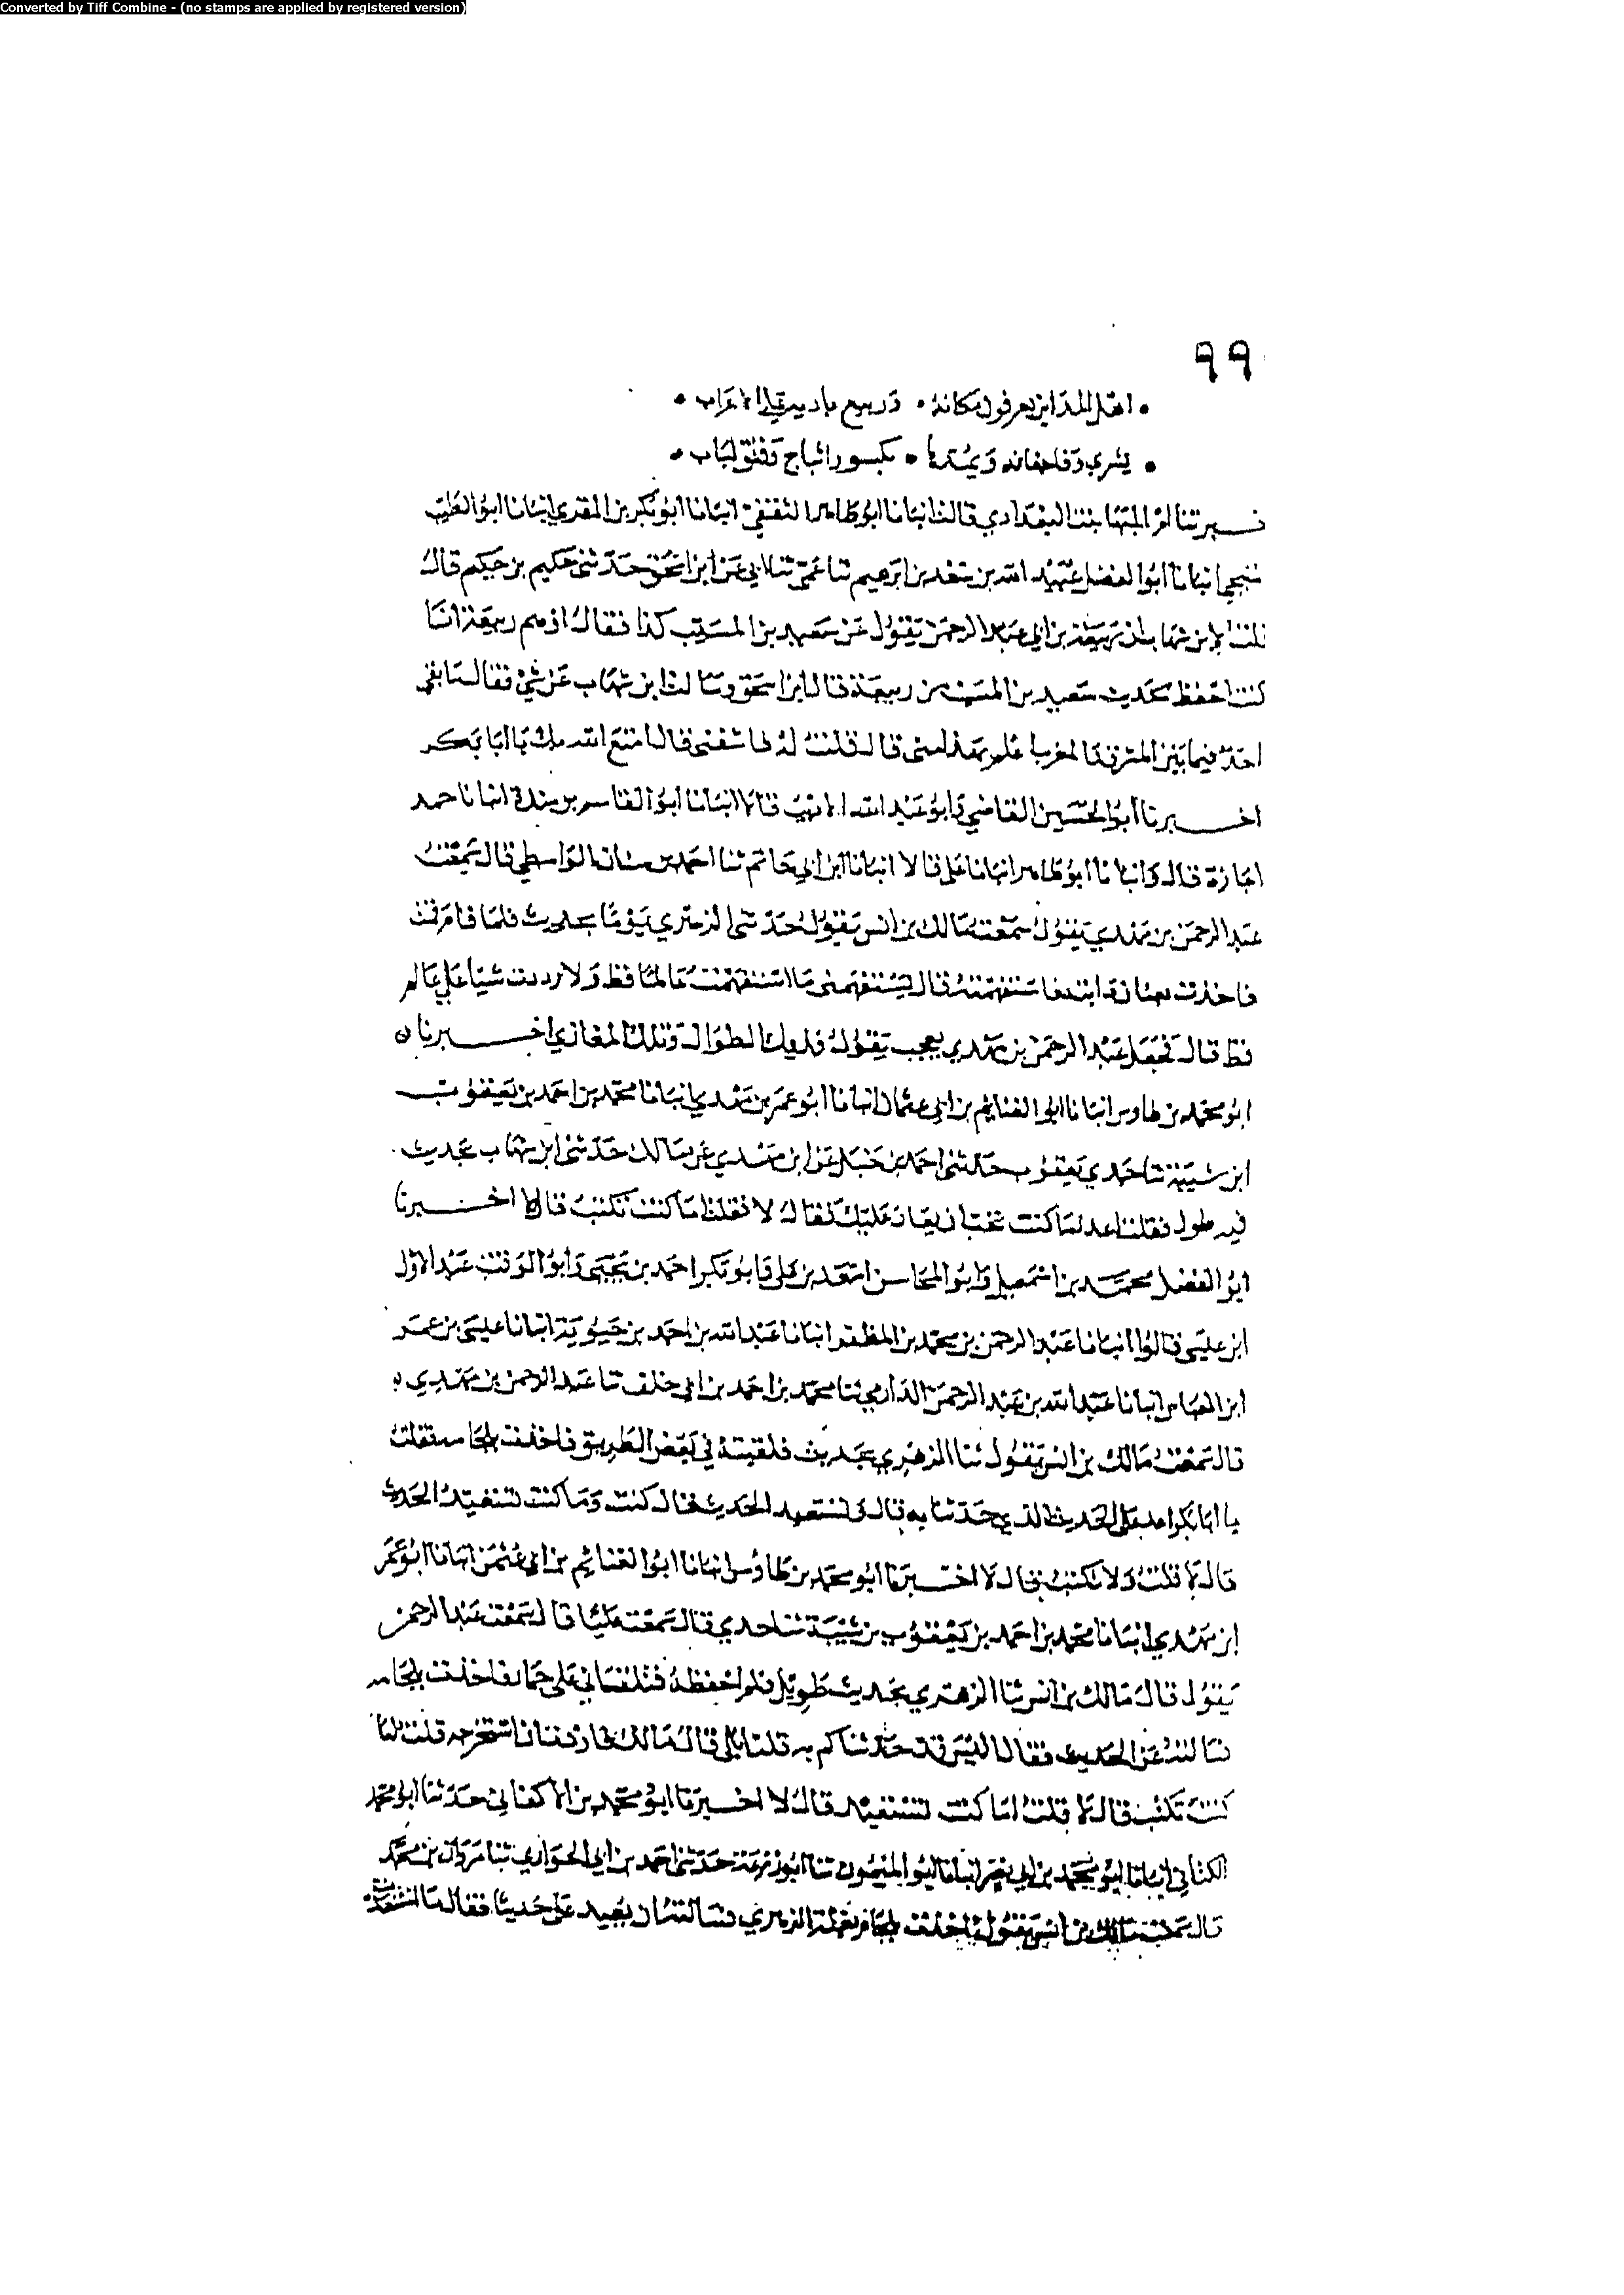 Converted by Tiff Combine - (no stamps are applied by registered version)
٩٩
• اهل المداين يعرفون مكانه • وربيع باديه على الاعراب •
• يشري وفا جفانه ويمدها • بكسور اثباج وفتق لباب •
ـبرتنا ام البها بنت البغدادي قالت انبانا ابو طاهر الثقفي انبانا ابو بكر بن المقري انبانا ابو الطيب
منبجي انبانا ابو الفضل عبيد الله بن سعد بن ابرهيم ثنا عمي ثنا ابي عن ابن اسحق حدثني حكيم بن حكيم قال
قلت لابن شهاب ان ربيعة بن ابي عبد الرحمن يقول عن سعيد بن المسيب كذا فقال اوهم ربيعة انا
كنت احفظ لحديث سعيد بن المسيب من ربيعة قال ابن اسحق وسالت ابن شهاب عن شي فقال ما بقي
احد فيما بين المشرق والمغرب اعلم بهذا مني قال قلت له فاشفني قال امتع الله بك يا ابا بكر
اخـبرنا ابو الحسين القاضي وابو عبد الله الاديب قالا انبانا ابو القاسم بن مندة انبانا حمد
اجازة قال وانبانا ابو طاهر انبانا علي قالا انبانا ابن ابي حاتم ثنا احمد بن سنان الواسطي قال سمعت
عبد الرحمن بن مهدي يقول سمعت مالك بن انس يقول حدثني الزهري يوما بحديث فلما قام قمت
فاخذت بعنان دابته فاستفهمته فقال تستفهمني ما استفهمت عالما قط ولا رددت شيا على عالم
قط قال فجعل عبد الرحمن بن مهدي يعجب يقول فذيك الطوال وتلك المغازي اخـبرنا
ابو محمد بن طاوس انبانا ابو الغنايم بن ابي عثمان انبانا ابو عمر بن مهدي انبانا محمد بن احمد بن يعقوب
ابن شيبة ثنا جدي يعقوب حدثني احمد بن حنبل عن ابن مهدي عن مالك حدثني ابن شهاب بحديث
فيه طول فقلت اعد اما كنت تحب ان يعاد عليك فقال لا فقلت اما كنت تكتب قال لا اخـبرنا
ابو الفضل محمد بن اسمعيل وابو المحاسن اسعد بن علي وابو بكر احمد بن يحيى وابو الوقت عبد الاول
ابن عيسى قالوا انبانا عبد الرحمن بن محمد بن المظفر انبانا عبد الله بن احمد بن حيويه انبانا عيسى بن عمر
ابن العباس انبانا عبد الله بن عبد الرحمن الدارمي ثنا محمد بن احمد بن ابي خلف ثنا عبد الرحمن بن مهدي
قال سمعت مالك بن انس يقول ثنا الزهري بحديث فلقيته في بعض الطريق فاخذت بلجامه فقلت
يا ابا بكر اعد علي الحديث الذي حدثتنا به قال وتستعيد الحديث قال كنت وما كنت تستعيد الحديث
قال لا قلت ولا تكتب قال لا اخـبرنا ابو محمد بن طاوس انبانا ابو الغنائم بن ابي عثمن انبانا ابو عمر
ابن مهدي انبانا محمد بن احمد بن يعقوب بن شيبة ثنا جدي قال سمعت عليا قال سمعت عبد الرحمن
يقول قال مالك بن انس ثنا الزهري بحديث طويل فلم احفظه فتلقاني على حمار فاخذت بلجامه
فسالته عن الحديث فقال اليس قد حدثتكم به قلت بلى قال مالك فاستخرجه قلت اما
كنت تكتب قال لا قلت اما كنت تستعيد قال لا اخـبرنا ابو محمد بن الاكفاني حدثنا ابو محمد
الكتاني انبانا ابو محمد بن ابي نصر انبانا ابو الميمون ثنا ابو زرعة حدثني احمد بن ابي الحواري ثنا مروان بن محمد
قال سمعت مالك بن انس يقول اخذت بلجام بغلة الزهري فسالته ان يعيد علي حديثا فقال ما استعدت